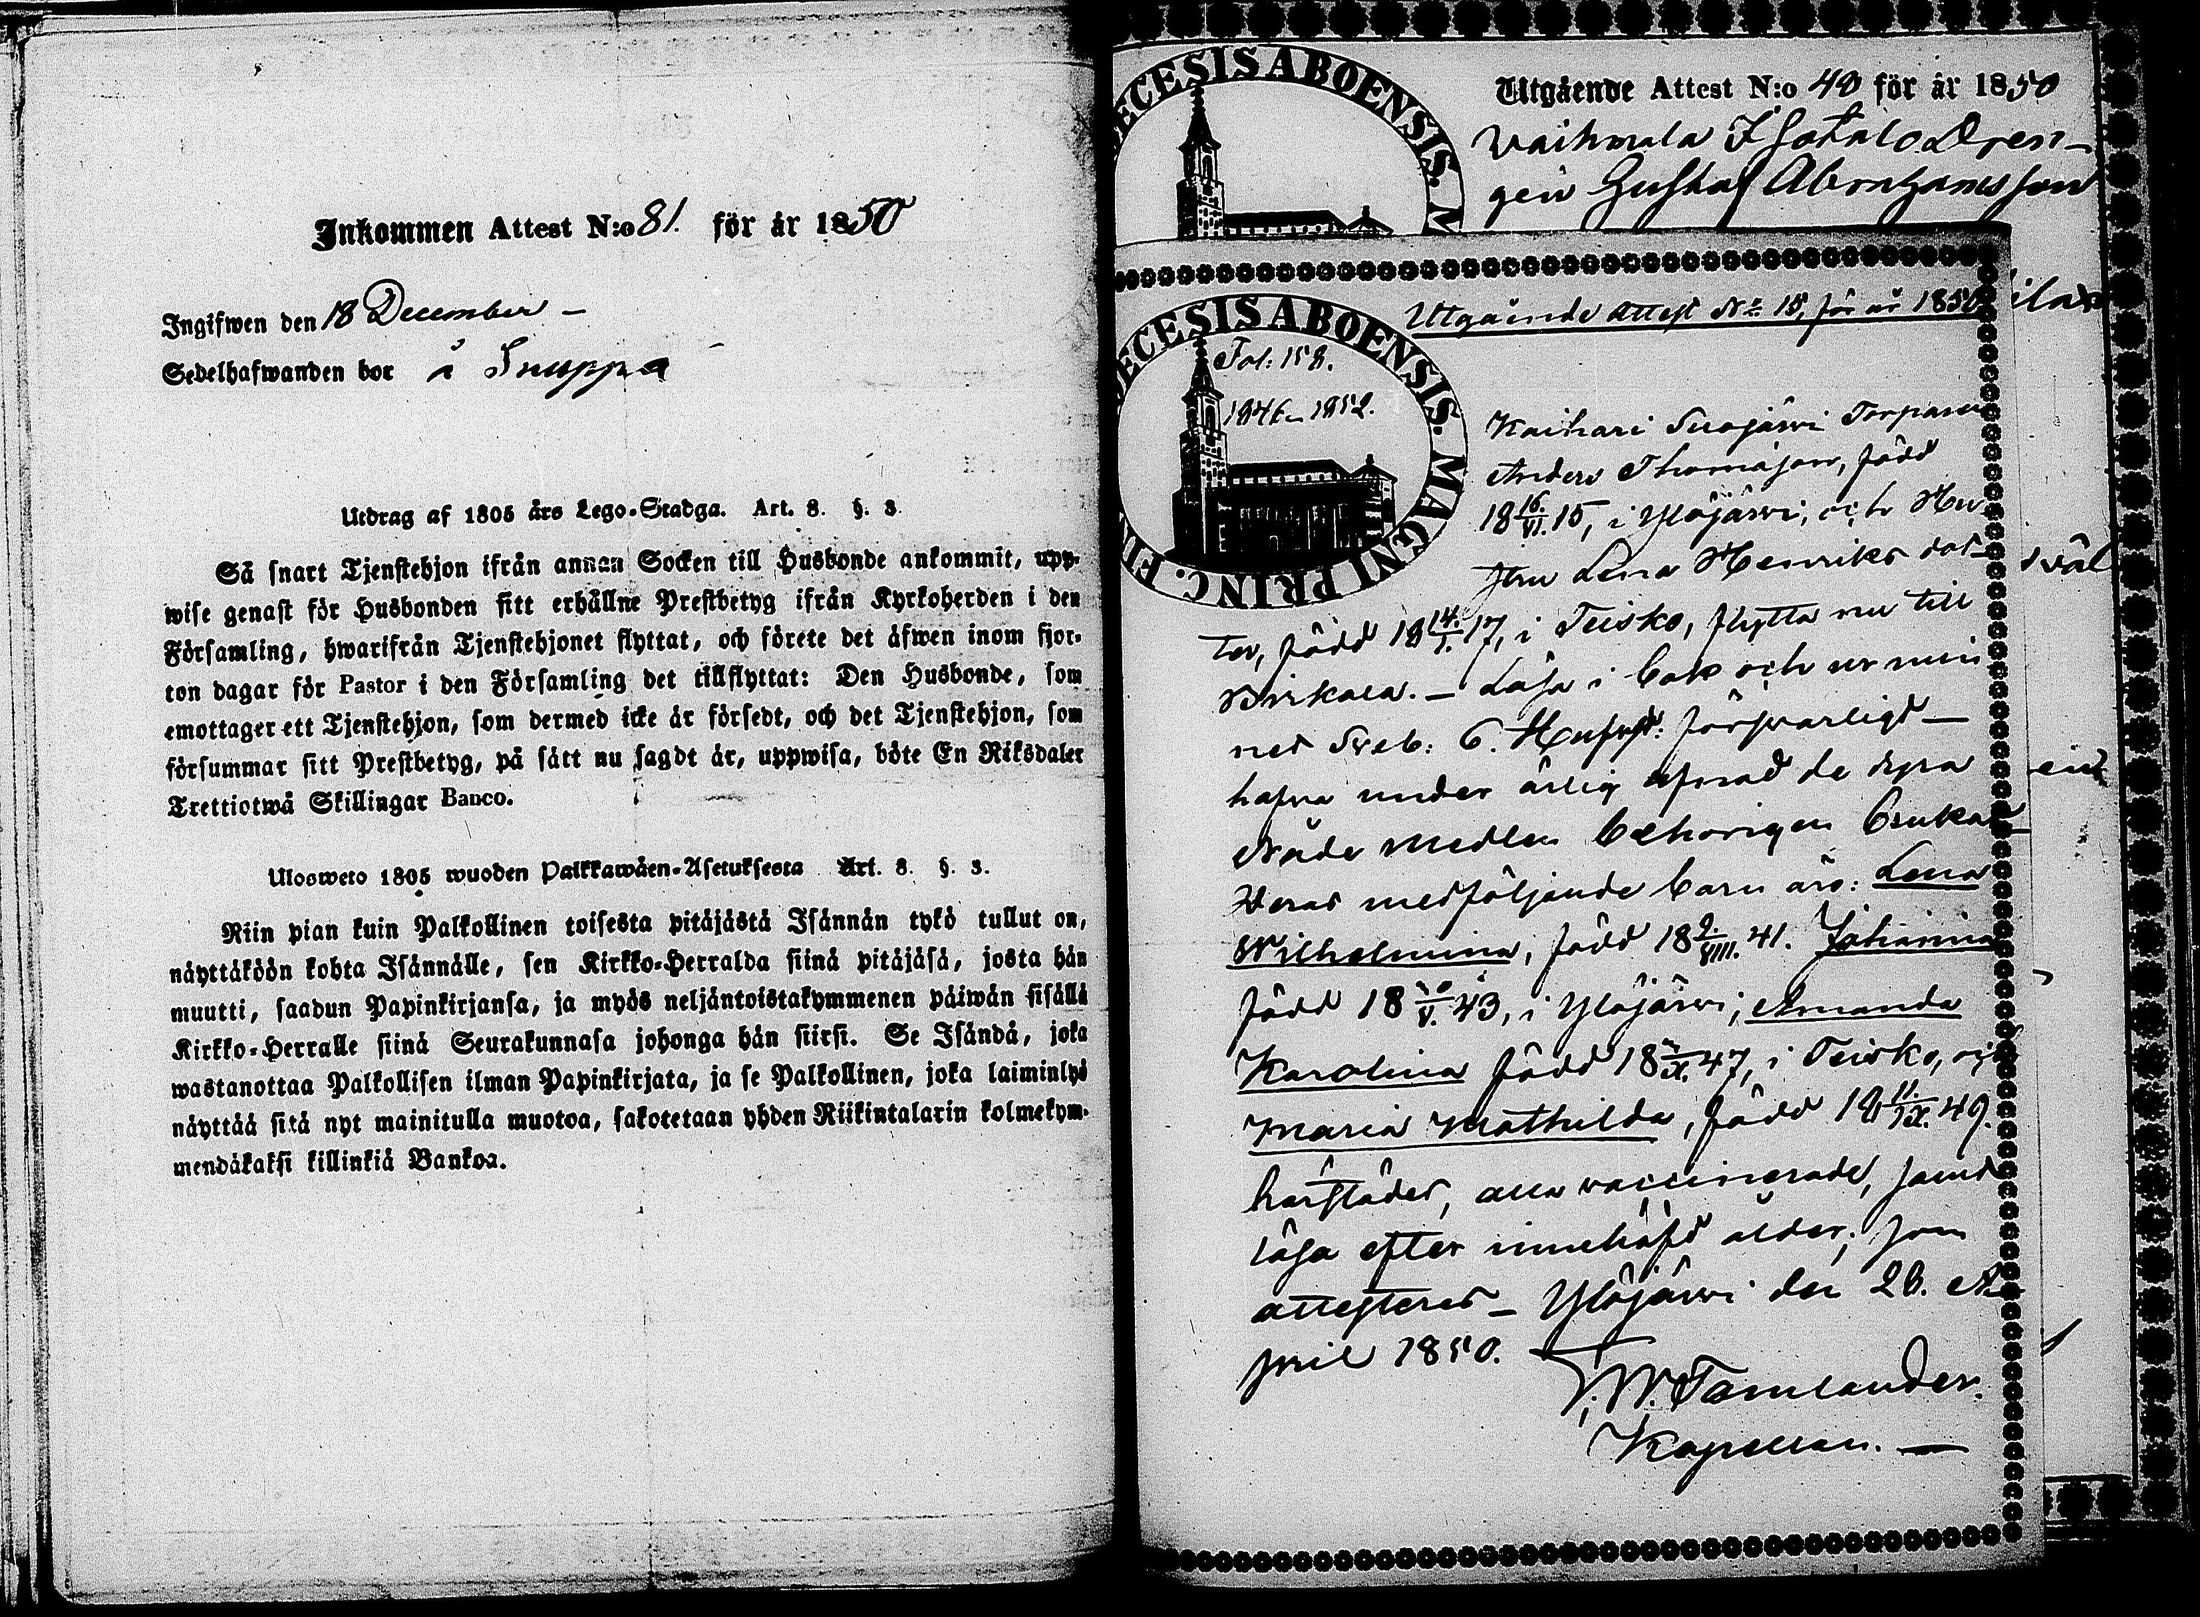 Inkommen Attest N:o 81. för år 1850
Ingifwen den 18 December –
Sedelhafwanden bor å Snuppa
Utdrag af 1805 års Lego-Stadga. Art. 8. §. 3.
Så snart Tjenstehjon ifrån annan Socken till Husbonde ankommit, upp-
wise genast för Husbonden sitt erhållne Prestbetyg ifrån Kyrkoherden i den
Församling, hwarifrån Tjenstehjonet flyttat, och förete det åfwen inom fjor-
ton dagar för Pastor i den Församling det tillflyttat: Den Husbonde, som
emottager ett Tjenstehjon, som dermed icke år försedt, och det Tjenstehjon, som
försummar sitt Prestbetyg, på sått nu sagdt år, uppwisa, böte En Riksdaler
Trettiotwå Skillingar Banco.
Ulosweto 1805 wuoden Palkkawåen-Asetuksesta Art. 8. §. 3.
Niin pian kuin Palkollinen toisesta pitåjåstå Isånnån tykö tullut on,
nåyttåköön kohta Isånnålle, sen Kirkko-Herralda siinå pitåjåså, josta hån
muutti, saadun Papinkirjansa, ja myös neljåntoistakymmenen påiwån sisållå
Kirkko-Herralle siinå Seurakunnasa johonga hån siirsi. Se Isåndå, joka
wastanottaa Palkollisen ilman Papinkirjata, ja se Palkollinen, joka laiminlyö
nåyttåå sitå nyt mainitulla muotoa, sakotetaan yhden Riikintalarin kolmekym-
mendåkaksi killinkiå Bankoa.
Utgående Attest N:o 40 för år 1850
Vaihmala Isotalo Dren-
gen Gustaf Abrahamsson
ECESIS ABOENSIS. M
Utgående Attest No 15, för år 1850
ECESIS ABOENSIS. MAGNI PRINC. FIN
Fol: 158.
1846–1852.
Kaihari Suojärvi Torparen
Anders Thomasson, född
18 16./VI. 15, i Ylöjärvi, och Hu-
stru Lena Henriks dot-
ter, född 18 14./I. 17, i Teisko, flytta nu till
Birkala. – Läsa i bok och ur min
nes Sveb: C. Husfst: försvarligt –
hafva under årlig afnad de dyra
Nåde Medlen behörigen brukat
Deras medföljande barn äro: Lena
Wilhelmina, född 18 2./VIII. 41. Johanna
född 18 /V. 43, i Ylöjärvi; Amanda
Karolina född 18 47, i Teisko, och
Maria Mathilda, född 18 11./IX. 49.
härstädes, alla vaccinerade, samt
läsa efter innehafd ålder; som
attesteras – Ylöjärvi den 20. A
pril 1850.
W. Tamlander.
Kapellan. –